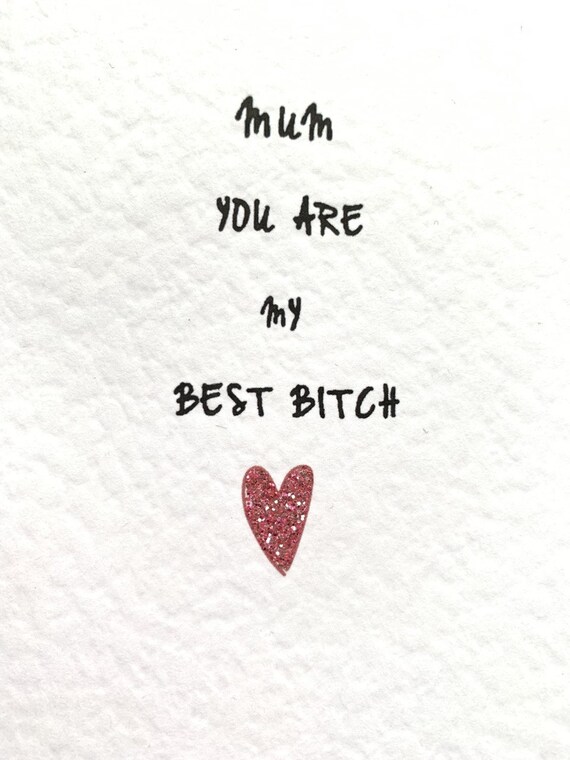 MUM
YOU ARE
MY
BEST BITCH